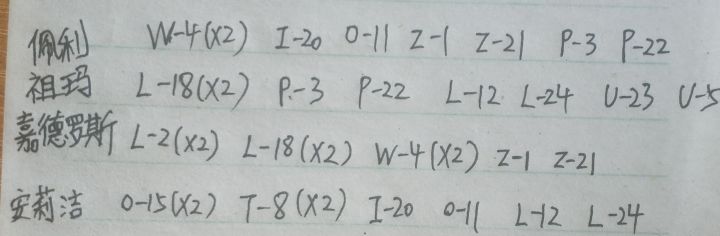 佩利 W-4(X2) I-20 O-11 Z-1 Z-21 P-3 P-22
祖玛 L-18(X2) P-3 P-22 L-12 L-24 U-23 U-5
嘉德罗斯 L-2(X2) L-18(X2) W-4(X2) Z-1 Z-21
安莉洁 O-15(X2) T-8(X2) I-20 O-11 L-12 L-24